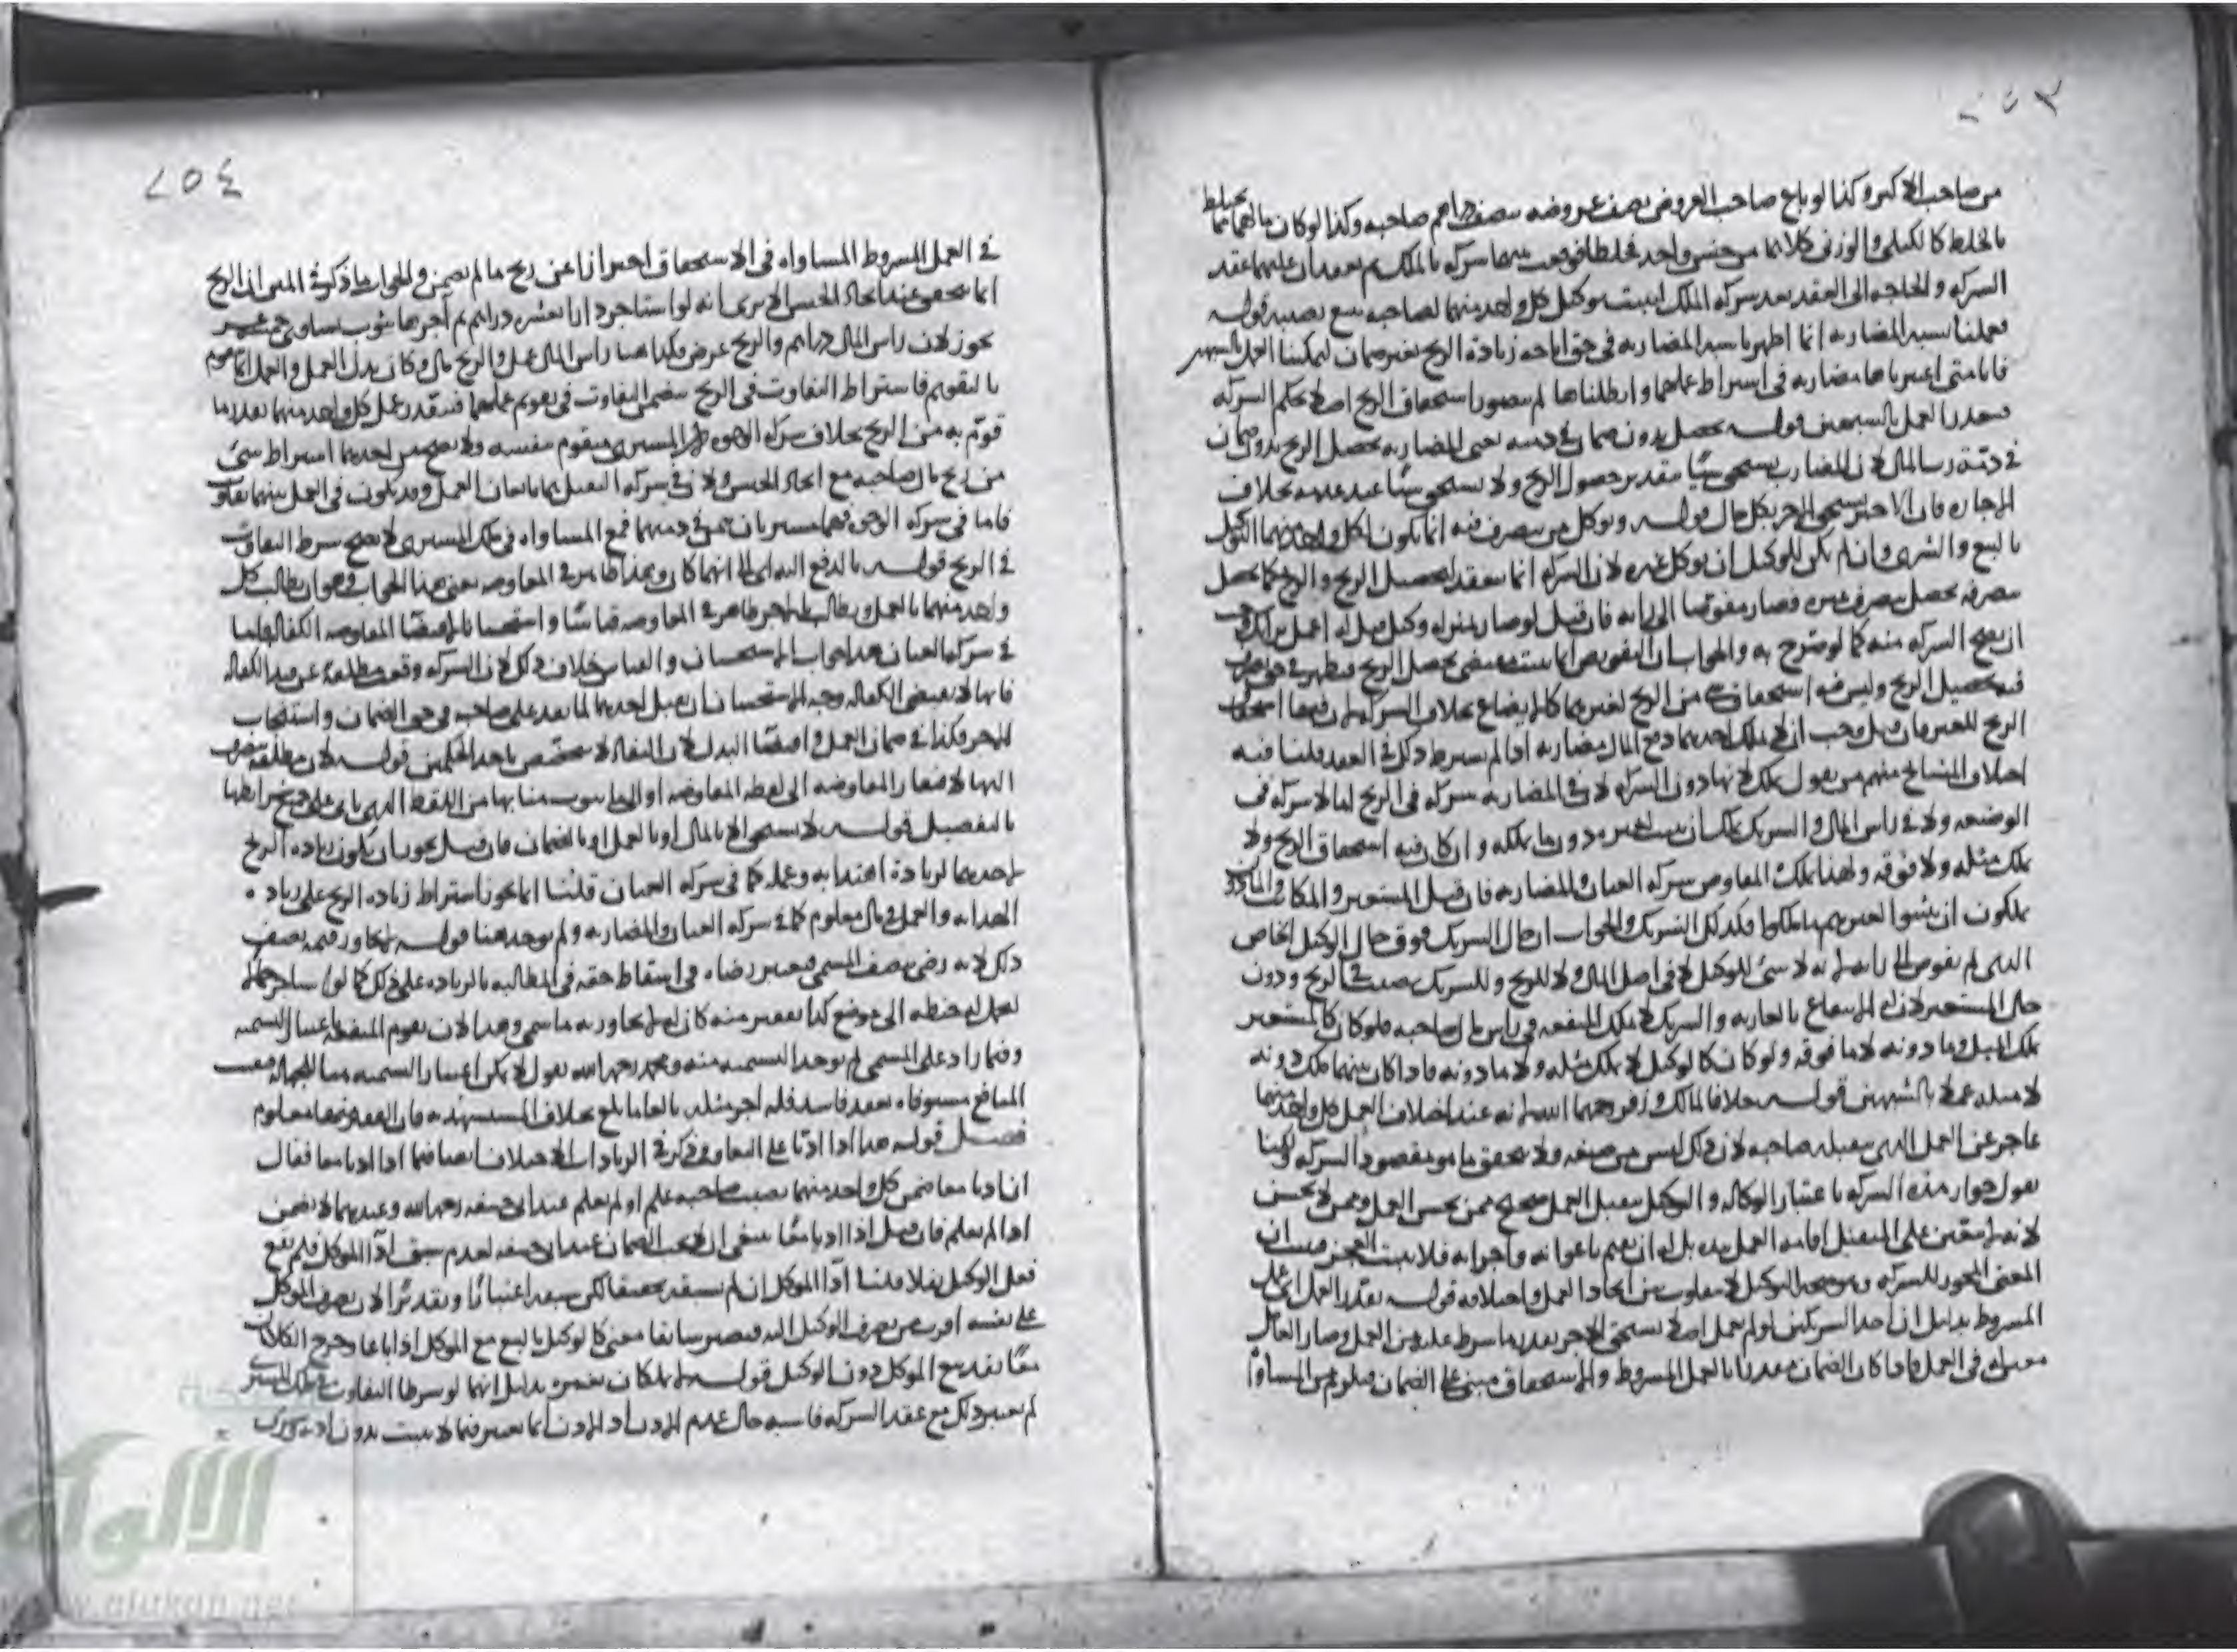 ٢٥٣
من صاحب الاكبر وكذا لو باع صاحب العروض نصف عروضه بنصف دراهم صاحبه وكذا لو كان مالهما مما يختلط
بالخلط كالكيلي والوزني كلاهما من جنس واحد فخلطا فوقعت بينهما شركة بالملك ثم يعقدان عليهما عقد
الشركة والحاجة الى العقد بعد شركة الملك ليثبت توكيل كل واحد منهما لصاحبه ببيع نصيبه قوله
فعملنا بشبه المضاربة انما اظهرنا شبه المضاربة في حق اباحة زيادة الربح بغير ضمان ليمكننا العمل بالشبهين
فانا متى اعتبرناها مضاربة في اشتراط عملهما وابطلناها لم يتصور استحقاق الربح اصلا بحكم الشركة
فتعذر العمل بالشبهين قوله يحصل بدون ضمان في ذمته يعني المضاربة يحصل الربح بدون ضمان
في ذمة رب المال لان المضارب يستحق شيئا بتقدير حصول الربح ولا يستحق شيئا عند عدمه بخلاف
الاجارة فان الاجير يستحق الاجر بكل حال قوله وتوكل من يتصرف فيه انما يكون لكل واحد منهما التوكيل
بالبيع والشرى وان لم يكن للوكيل ان يوكل غيره لان الشركة انما تنعقد لتحصيل الربح والربح كما يحصل
بتصرفه يحصل بتصرف غيره فصار مفوضا الى رأيه فان قيل لو صار بمنزلة وكيل قيل له اعمل برأيك
ان يصح الشركة منه كما لو صرح به والجواب ان التفويض انما يثبت بمقتضى تحصيل الربح فيظهر في حق
فيه تحصيل الربح وليس فيه استحقاق شيء من الربح لغيرهما كالابضاع بخلاف الشركة لان فيها استحقاق
الربح للغير فان قيل وجب ان لا يملك احدهما دفع المال مضاربة اذا لم يشترط ذلك في العقد قلنا فيه
اختلاف المشايخ منهم من يقول يملك لانها دون الشركة لان في المضاربة شركة في الربح لما لا شركة في
الوضيعة ولا في رأس المال والشريك يملك ان يثبت لغيره دون ما يملكه وان كان فيه استحقاق الربح ولا
يملك مثله ولا فوقه ولهذا يملك المفاوض شركة العنان والمضاربة فان قيل المستعير والمكاتب والماذون
يملكون ان يثبتوا لغيرهم ما ملكوا فكذلك الشريك والجواب ان حال الشريك فوق حال الوكيل الخاص
الذي لم يفوض الى رأيه لانه لا شئ للوكيل لا في اصل المال ولا للربح وللشريك نصيب في الربح ودون
حال المستعير لان له الانتفاع بالعارية والشريك لا يملك المنفعة في رأس مال صاحبه فلو كان كالمستعير
يملك المثل وما دونه لا ما فوقه ولو كان كالوكيل لا يملك مثله ولا ما دونه فاذا كان بينهما ملك دونه
لا مثله عملا بالشبهين قوله خلافا لمالك وزفر رحمهما الله لانه عند اختلاف العمل كل واحد منهما
عاجز عن العمل الذي يتقبله صاحبه لان ذلك ليس من صنعته ولا يتحقق ما هو مقصود الشركة لكنا
نقول جواز هذه الشركة باعتبار الوكالة والتوكيل بتقبل العمل صحيح ممن يحسن العمل وممن لا يحسن
لانه لا يتعين على المتقبل اقامة العمل بيده بل له ان يقيم باعوانه واجرائه فلا يثبت العجز فيثبت ان
المعنى المجوز للشركة وهو صحة التوكيل لا يتفاوت بين اتحاد العمل واختلافه قوله بقدر العمل اي عمل
المشروط بدليل ان احد الشريكين لو لم يعمل اصلا يستحق الاجر بقدر ما شرط عليه من العمل وصار العامل
معينا له في العمل فاذا كان الضمان مقدرا بالعمل المشروط والاستحقاق مبنى على الضمان فيلزم من المساواة
٢٥٤
في العمل المشروط المساواة في الاستحقاق احترازا عن ربح ما لم يضمن والجواب ما ذكر في المتن ان الربح
انما يتحقق عند اتحاد الجنس الا يرى انه لو استاجر دارا بعشرة دراهم ثم آجرها بثوب يساوي خمسة عشر
يجوز لان رأس المال دراهم والربح عرض وكذا هنا رأس المال عمل والربح مال وكان بدل العمل والعمل انما يقوم
بالتقويم فاشتراط التفاوت في الربح يتضمن التفاوت في تقويم عملهما فيتقدر عمل كل واحد منهما بقدر ما
قوّم به من الربح بخلاف شركة الوجوه لان المشترى متقوم بنفسه ولا يصح من احدهما اشتراط شئ
من ربح مال صاحبه مع اتحاد الجنس ولان في شركة التقبل هما بائعان العمل وقد يكون في العمل بينهما تفاوت
فاما في شركة الوجوه فهما مشتريان بثمن في ذمتهما فمع المساواة في ملك المشترى لا يصح شرط التفاوت
في الربح قوله بالدفع اليه اى الى ايهما كان وهذا ظاهر في المفاوضة يعني هذا الجواب وهو ان يطالب كل
واحد منهما بالعمل ويطالب بالاجر ظاهر في المفاوضة قياسا واستحسانا لاقتضاء المفاوضة الكفالة فاما
في شركة العنان هذا جواب الاستحسان والقياس خلاف ذلك لان الشركة وقعت مطلقة عن قيد الكفالة
فانها لا تقتضي الكفالة وجه الاستحسان ان تقبل احدهما لما نفذ على صاحبه في حق الضمان واستيجاب
الاجر فكذا في ضمان العمل واقتضاء البدل لان النفاذ لا يختص باحد الحكمين قوله لان مطلقه ينصرف
اليها لافتقار المفاوضة الى لفظة المفاوضة او الى ما ينوب منابها من اللفظ الذي ياتي على جميع شرائطها
بالتفصيل قوله لا يستحق الا بالمال او بالعمل او بالضمان فان قيل يجوز ان يكون زيادة الربح
لاحدهما لزيادة اهتدائه وعمله كما في شركة العنان قلنا انما يجوز اشتراط زيادة الربح على زيادة
الهداية والعمل في مال معلوم كما في شركة العنان والمضاربة ولم يوجد هنا قوله لا يجاوز قيمة نصف
ذلك لانه رضي بنصف المسمى فيعتبر رضاه في اسقاط حقه في المطالبة بالزيادة على ذلك كما لو استاجر حمالا
ليحمل له حنطة الى موضع كذا بقفيز منه كان له لا يجاوز به ما سمى وهذا لان تقوم المنفعة باعتبار التسمية
وفيما زاد على المسمى لم يوجد التسمية منه ومحمد رحمه الله يقول لا يمكن اعتبار التسمية هنا للجهالة فبقيت
المنافع مستوفاة بعقد فاسد فله اجر مثله بالغا ما بلغ بخلاف المستشهد به فان القفيز معلوم
فصل قوله هذا اذا ادّيا على التعاقب وذكر في الزيادات الاختلاف ايضا فيما اذا اديا معا فقال
ان اديا معا ضمن كل واحد منهما نصيب صاحبه علم او لم يعلم عند ابي حنيفة رحمه الله وعندهما لا يضمن
اذا لم يعلم فان قيل اذا اديا معا ينبغي ان لا يجب الضمان عند ابي حنيفة لعدم سبق اداء الموكل فلم يقع
فعل الوكيل نفلا قلنا اداء الموكل ان لم يسبقه تحقيقا لكن سبقه اعتبارا وتقديرا لان تصرف الموكل
على نفسه اقرب من تصرف الوكيل اليه فيصير سابقا معنى كالوكيل بالبيع مع الموكل اذا باعا وخرج الكلامان
معا نفذ بيع الموكل دون الوكيل قوله لا يملكان تغييره بدليل انهما لو شرطا التفاوت في ملك المشترى
لم يعتبر ذلك مع عقد الشركة فاشبه حال عدم الاذن اذ الاذن انما يعتبر فيما لا يثبت بدون اذنه
الألوكة
www.alukah.net